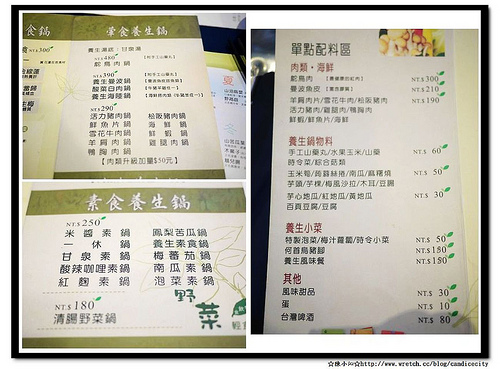 食鍋
葷食養生鍋
養生湯底:甘泉湯
NT.$480
鴕鳥肉鍋
NT.$390
養生曼波鍋
酸菜白肉鍋
養生海陸鍋
NT.$290
活力豬肉鍋 松阪豬肉鍋
鮮魚片鍋 海鮮鍋
雪花牛肉鍋 鮮蝦鍋
羊肩肉鍋 雞腿肉鍋
鴨胸肉鍋
【肉類升級加量$50元】
NT.$300
素食養生鍋
NT.$250
米醬素鍋 鳳梨苦瓜鍋
一休鍋 養生素食鍋
甘泉素鍋 梅番茄鍋
酸辣咖哩素鍋 南瓜素鍋
紅麴素鍋 泡菜素鍋
NT.$180
清腸野菜鍋
野菜
單點配料區
肉類・海鮮
鴕鳥肉 NT.$300
曼波魚皮 NT.$210
羊肩肉片/雪花牛肉/松阪豬肉 NT.$190
活力豬肉/雞腿肉/鴨胸肉
鮮蝦/鮮魚片/海鮮
養生鍋物料
手工山藥丸/水果玉米/山藥 NT.$ 60
時令菜/綜合菇類
玉米筍/蒟蒻絲捲/南瓜/麻糬燒 NT.$ 50
芋頭/芋粿/梅風沙拉/木耳/豆腸
芋心地瓜/紅地瓜/黃地瓜 NT.$ 30
百頁豆腐/豆腐
養生小菜
特製泡菜/梅汁蘿蔔/時令小菜 NT.$ 50
何首烏豬腳 NT.$150
養生風味餐 NT.$150
其他
風味甜品 NT.$ 30
蛋 NT.$ 10
台灣啤酒 NT.$ 80
☆陳小沁☆http://www.wretch.cc/blog/candicecity